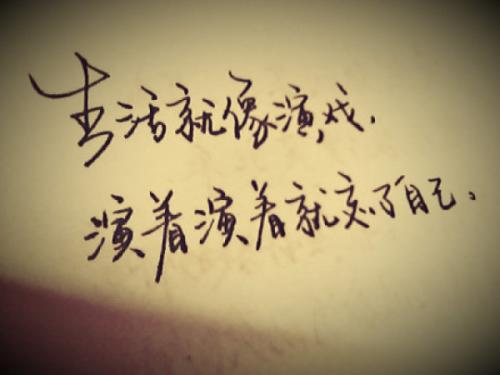 生活就像演戏，
演着演着就变了自己。